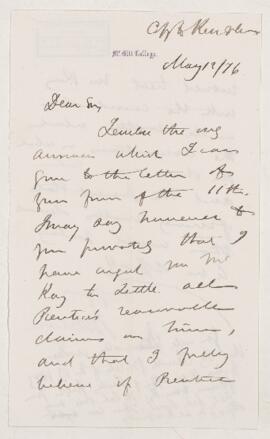 McGill College.
May 12/76
Dear Sir,
I enclose the only
answer which I can
give to the letter of
your firm of the 11th.
I may say however to
you privately that I
have urged on Mr
Kay to settle all
Rentice's reasonable
claims on him,
and that I fully
believe if Rentice